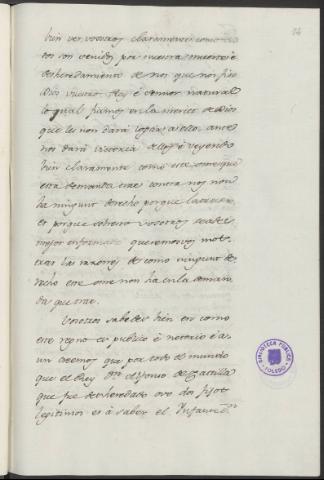 bien ver vosotros claramente como estos son venidos por nuestra muerte è
desheredamiento de nos que nos fizo
Dios vuestro Rey è señor natural
lo qual fiamos en la merced de Dios
que les non dará lugar a ello, antes
nos dará victoria dellos è veyendo
bien claramente como este ome que
esta demanda trae contra nos non
ha ningunt derecho porque la
et porque sobresto vosotros seades
mejor enformados queremosvos mostrar las razones de como ningunt derecho este ome non ha en la demanda que trae.
Vosotros sabedes bien en como
este regno es publico è notorio è aun creemos que por todo el mundo
que el Rey Dn. Alfonso de Castilla
que fue desheredado ovo dos fijos
legitimos es à saber el Infante Dn.
BIBLIOTECA PUBLICA
TOLEDO